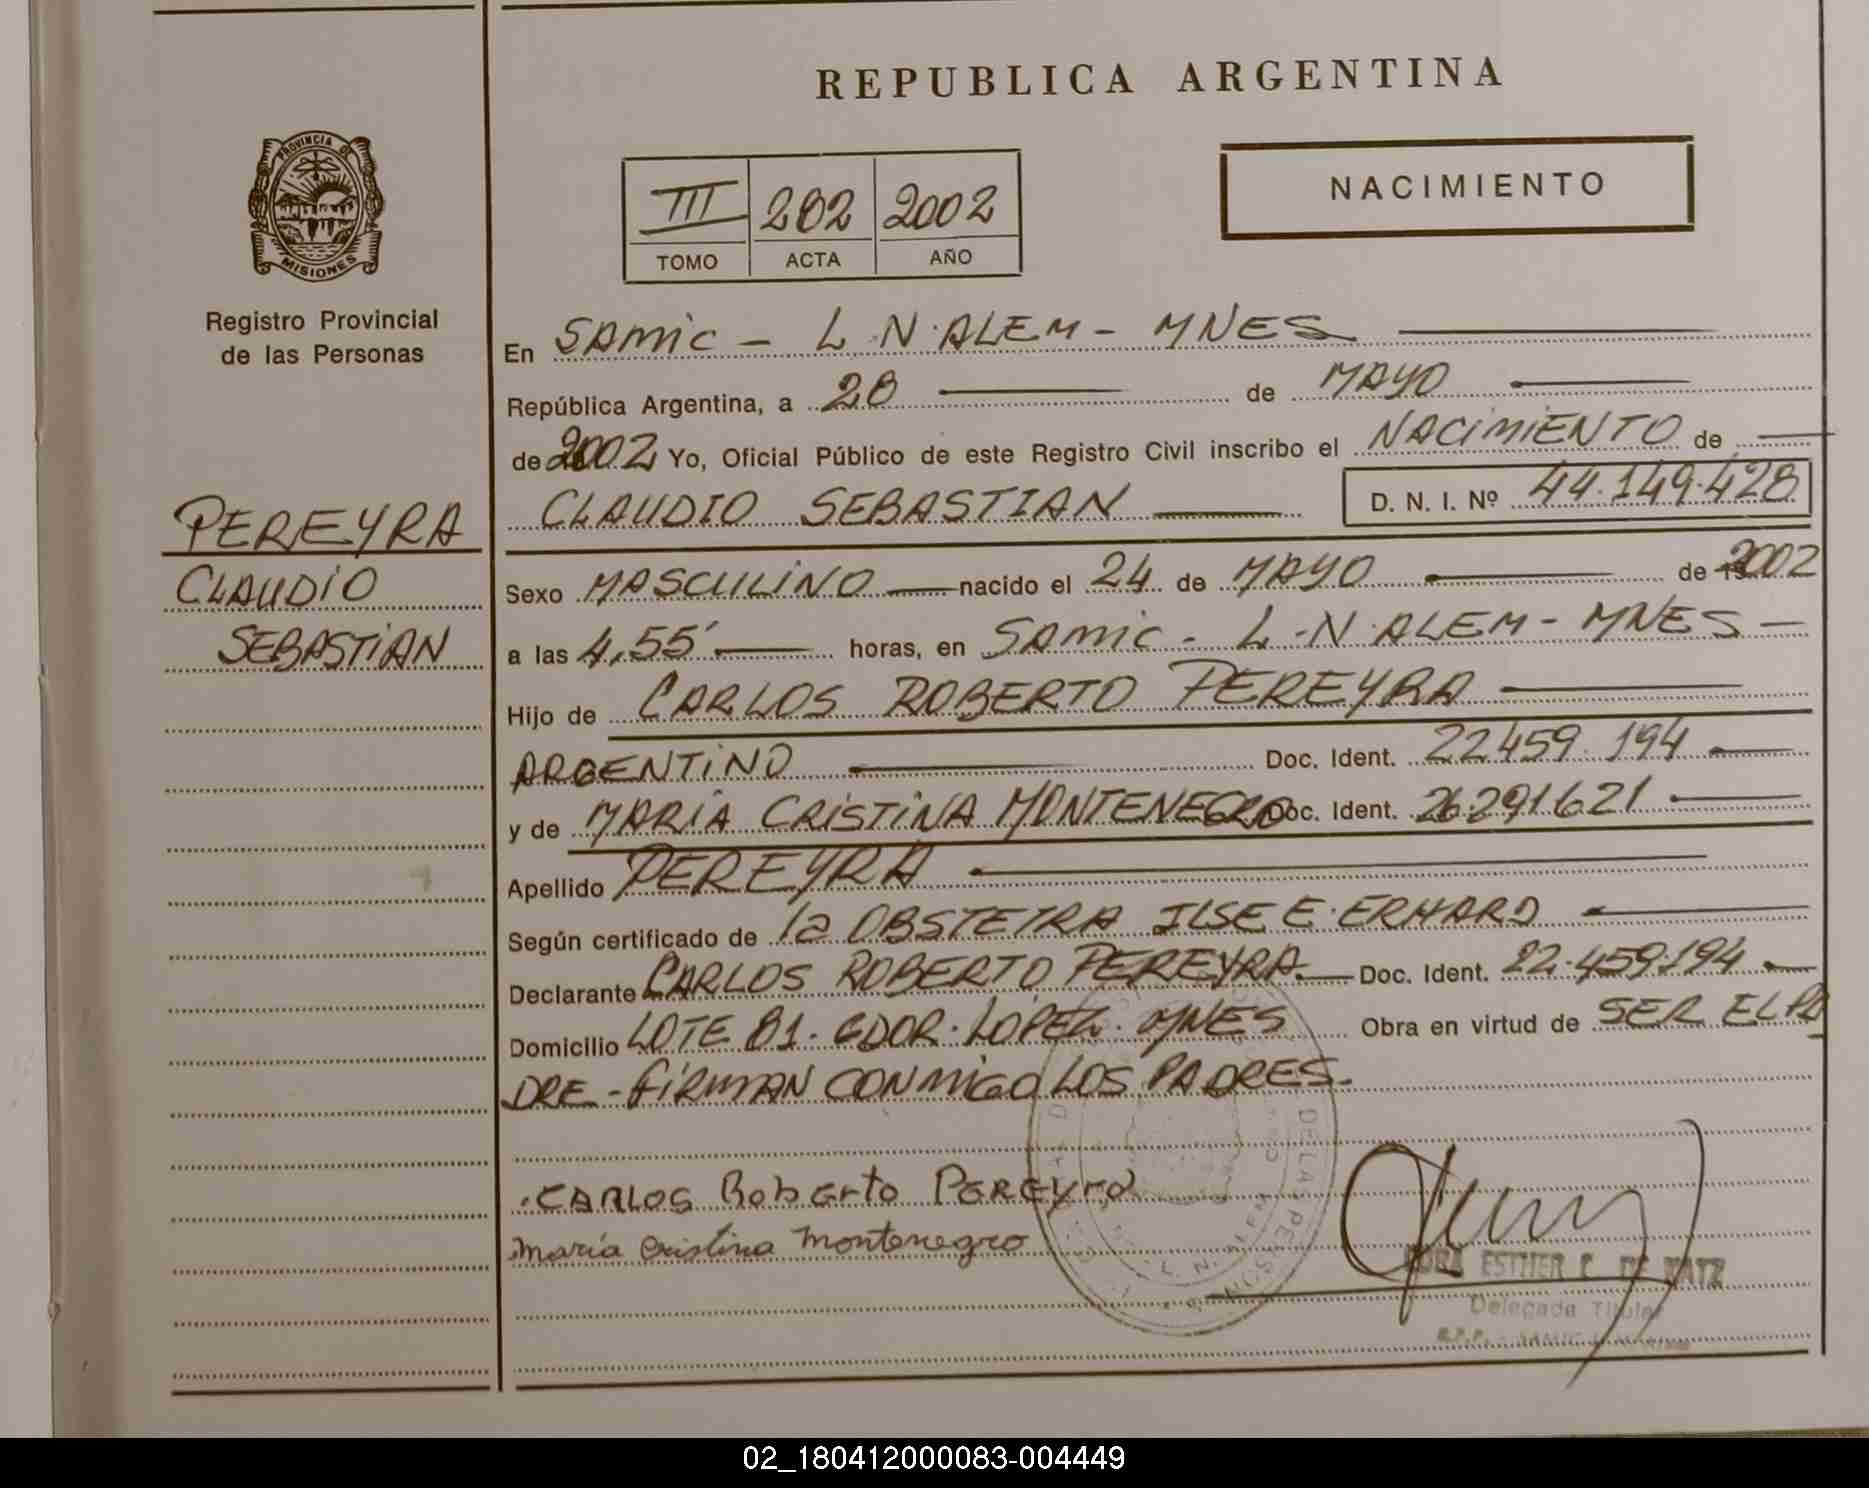 REPUBLICA ARGENTINA
PROVINCIA DE
MISIONES
Registro Provincial
de las Personas
III 202 2002
TOMO ACTA AÑO
NACIMIENTO
PEREYRA
CLAUDIO
SEBASTIAN
En SAMIC - L.N.ALEM - MNES
República Argentina, a 28 de MAYO
de 2002 Yo, Oficial Público de este Registro Civil inscribo el NACIMIENTO de
CLAUDIO SEBASTIAN D. N. I. Nº 44.149.428
Sexo MASCULINO nacido el 24 de MAYO de 2002
a las 4,55' horas, en SAMIC - L.N.ALEM - MNES -
Hijo de CARLOS ROBERTO PEREYRA
ARGENTINO Doc. Ident. 22.459.194
y de MARÍA CRISTINA MONTENEGRO Doc. Ident. 26.291.621
Apellido PEREYRA
Según certificado de la OBSTETRA ILSE E. ERHARD
Declarante CARLOS ROBERTO PEREYRA. Doc. Ident. 22.459.194
Domicilio LOTE 81. GDOR. LOPEZ. MNES Obra en virtud de SER EL PA
DRE - FIRMAN CONMIGO LOS PADRES.
CARLOS Roberto PEREYra
María Cristina Montenegro
ESTHER C. DE
Delegada Titular
02_180412000083-004449